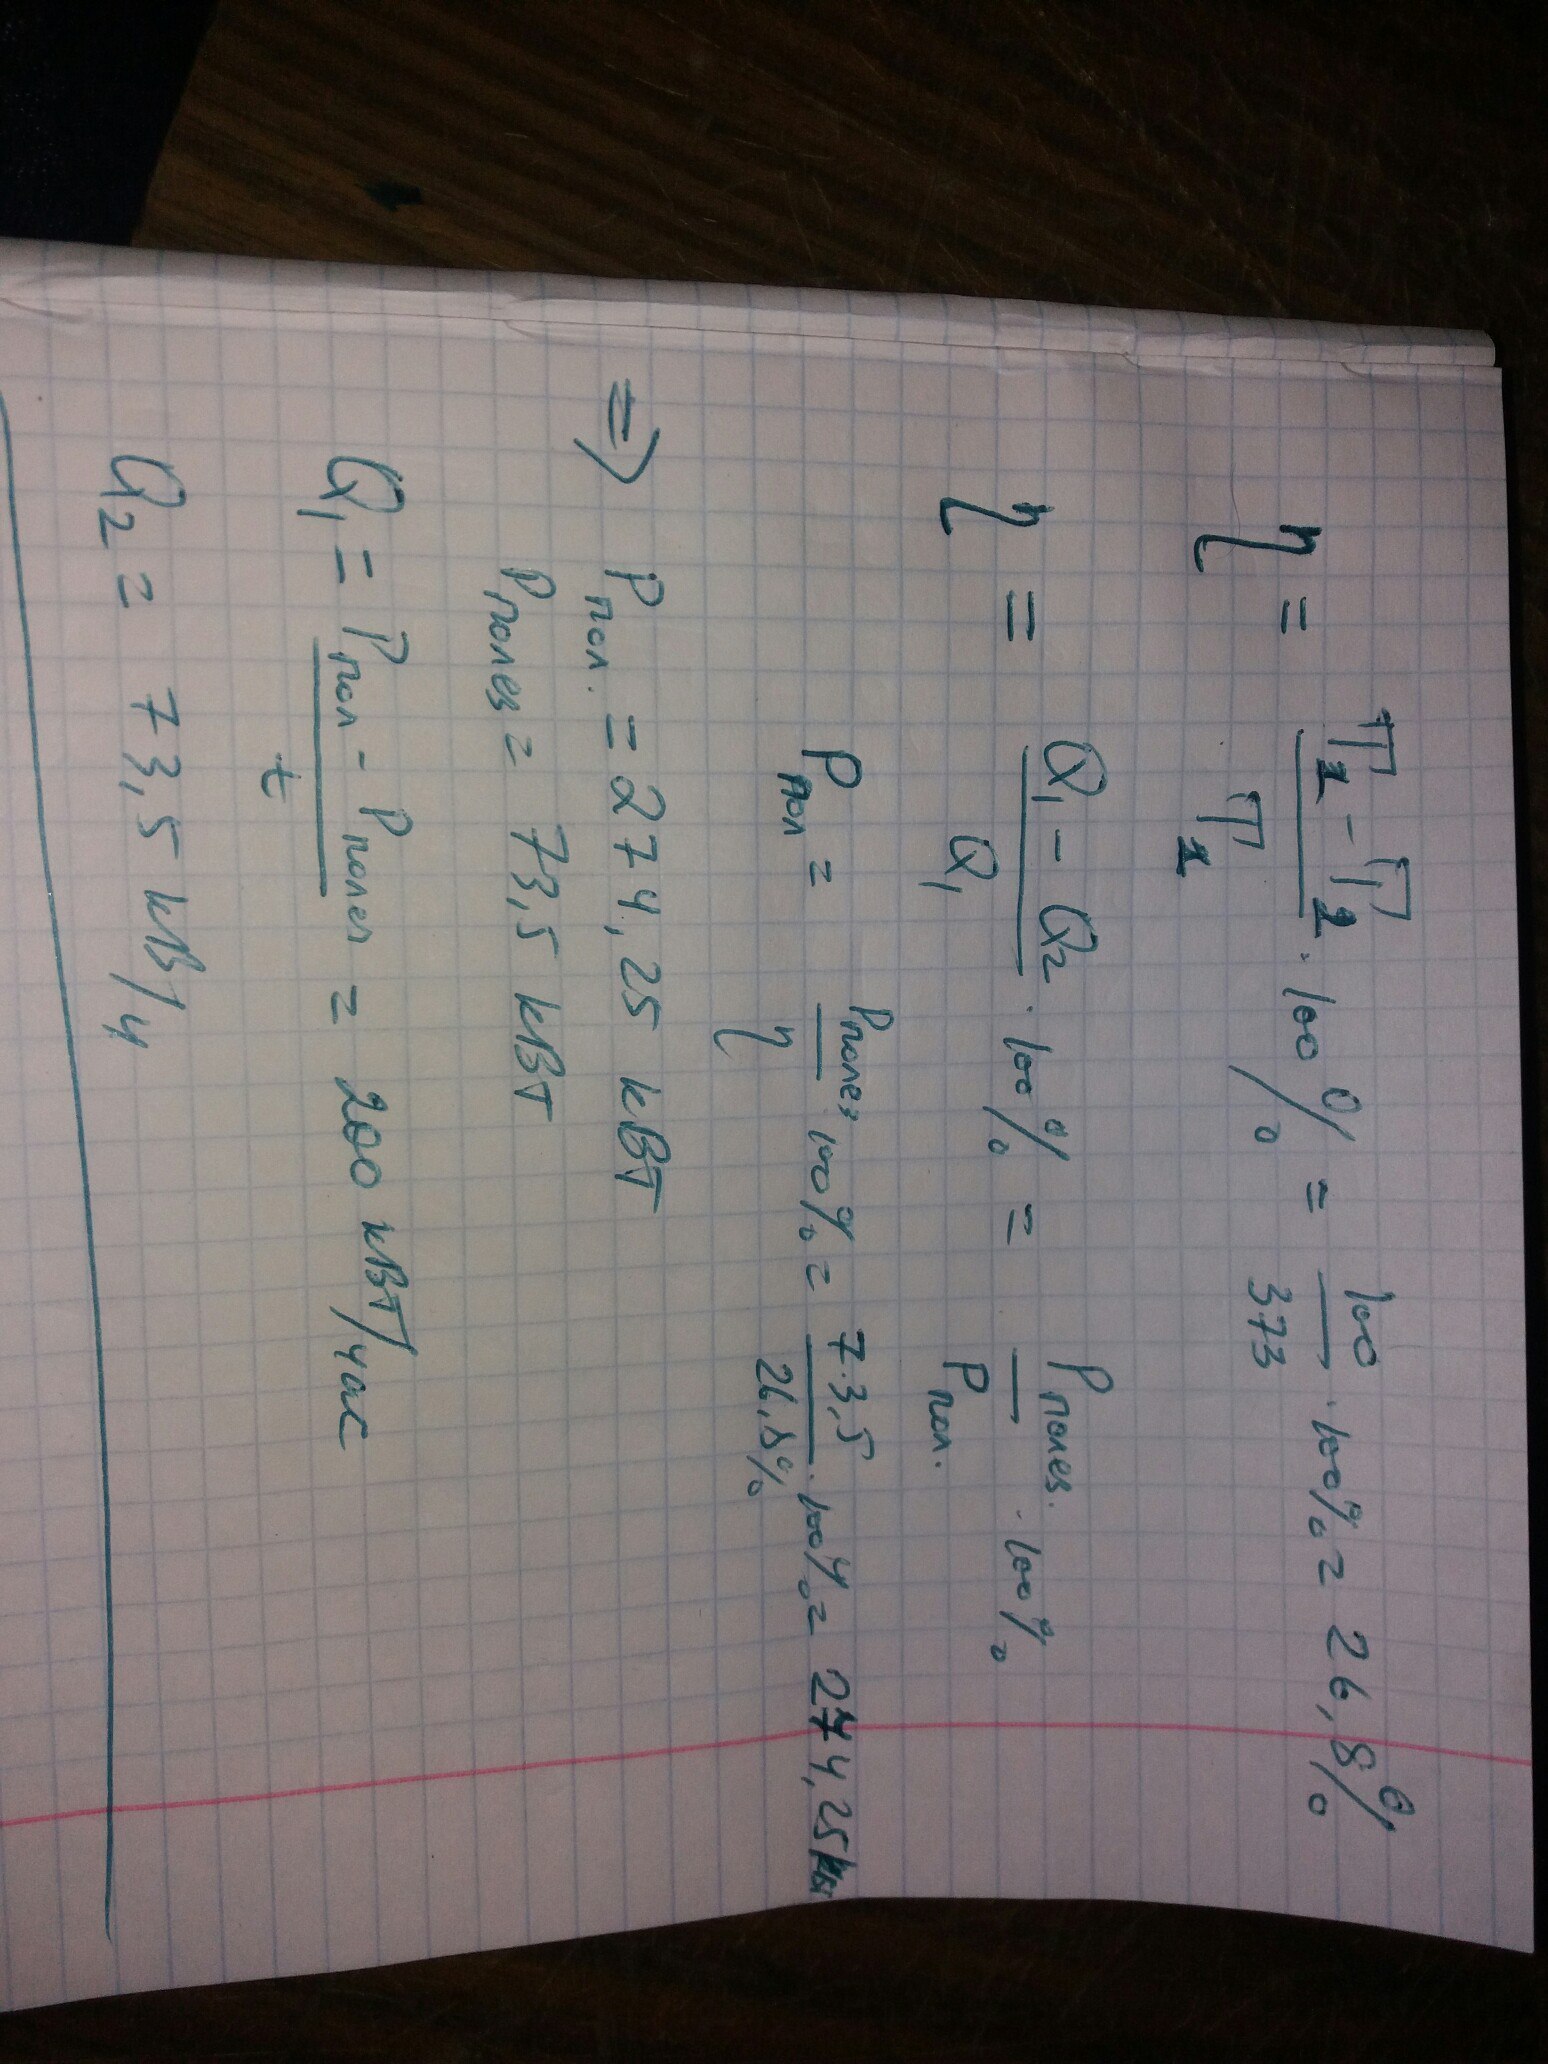 η = (T₁ - T₂)/T₁ · 100% = 100/373 · 100% = 26,8%
η = (Q₁ - Q₂)/Q₁ · 100% = Pполез./Pпол. · 100%
Pпол = Pполез/η · 100% = 73,5/26,8% · 100% = 274,25 кВт
⇒ Pпол. = 274,25 кВт
Pполез = 73,5 кВт
Q₁ = (Pпол - Pполез)/t = 200 кВт/час
Q₂ = 73,5 кВ/ч